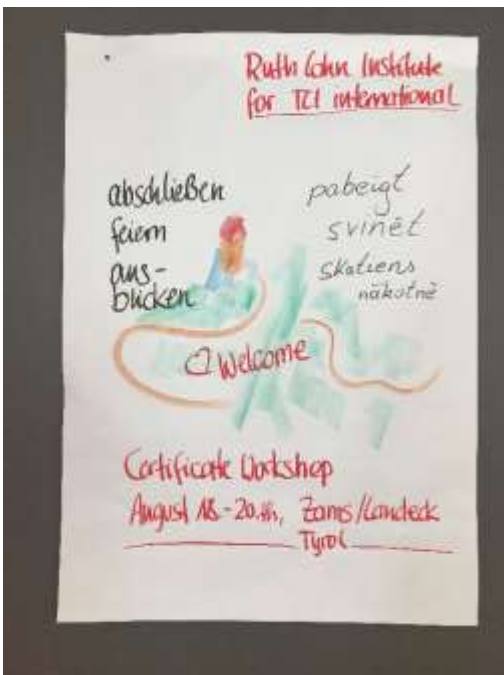 Ruth Cohn Institute
for TCI international
abschließen
feiern
aus-
blicken
pabeigt
svinēt
skatiens
nākotnē
Welcome
Certificate Workshop
August 18.-20.
Zams/Landeck
Tyrol